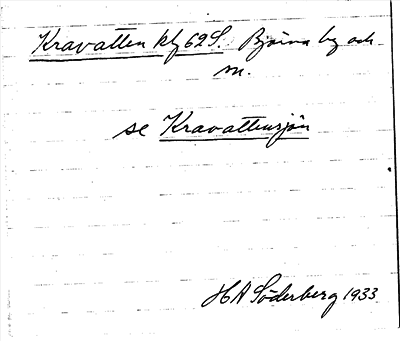 Kravatten kfg 62 S. Björna by och
sn.
se Kravattensjön
HA Söderberg 1933